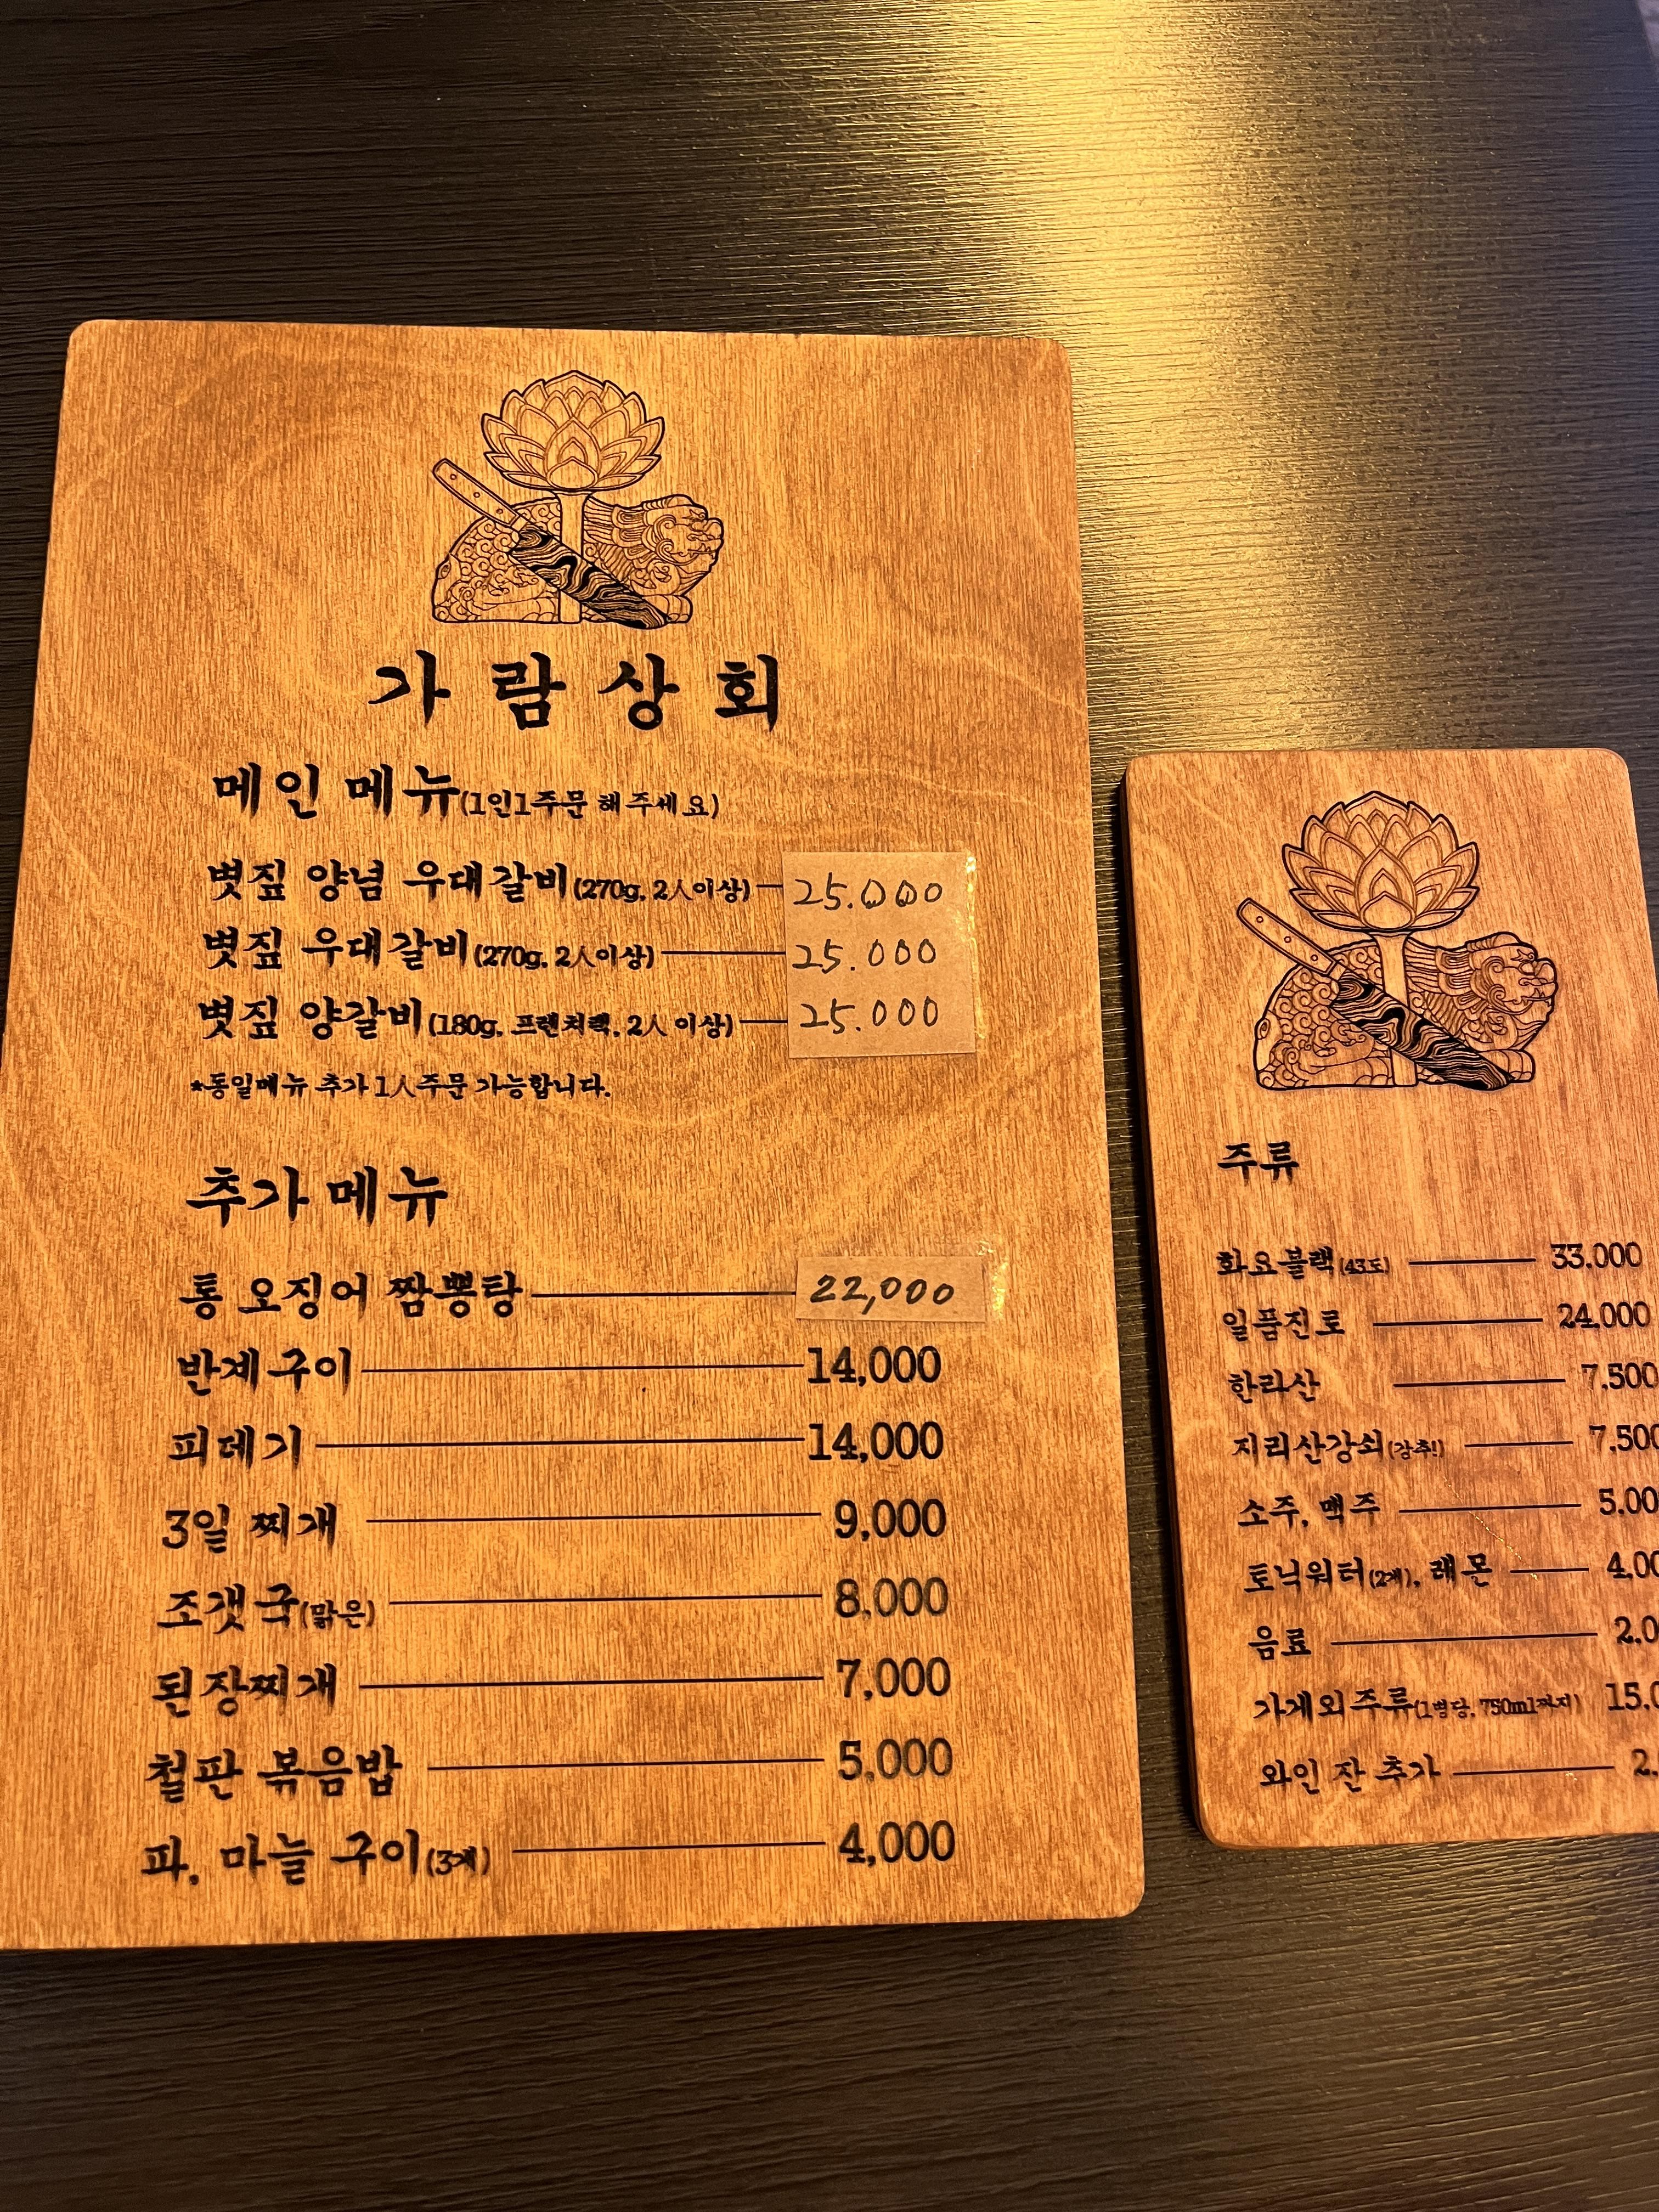 가람상회
메인 메뉴(1인1주문 해주세요)
볏짚 양념 우대갈비(270g, 2人이상) 25.000
볏짚 우대갈비(270g, 2人이상) 25.000
볏짚 양갈비(180g, 프렌치랙, 2人 이상) 25.000
*동일메뉴 추가 1人주문 가능합니다.
추가메뉴
통 오징어 짬뽕탕 22,000
반계구이 14,000
피데기 14,000
3일 찌개 9,000
조갯국(맑은) 8,000
된장찌개 7,000
철판 볶음밥 5,000
파, 마늘 구이(3개) 4,000
주류
화요블랙(43도) 33.000
일품진로 24.000
한라산 7.500
지리산강쇠(강추!) 7.500
소주, 맥주 5.00
토닉워터(2개), 레몬 4.00
음료 2.0
가게외주류(1병당, 750ml까지) 15.0
와인 잔 추가 2.